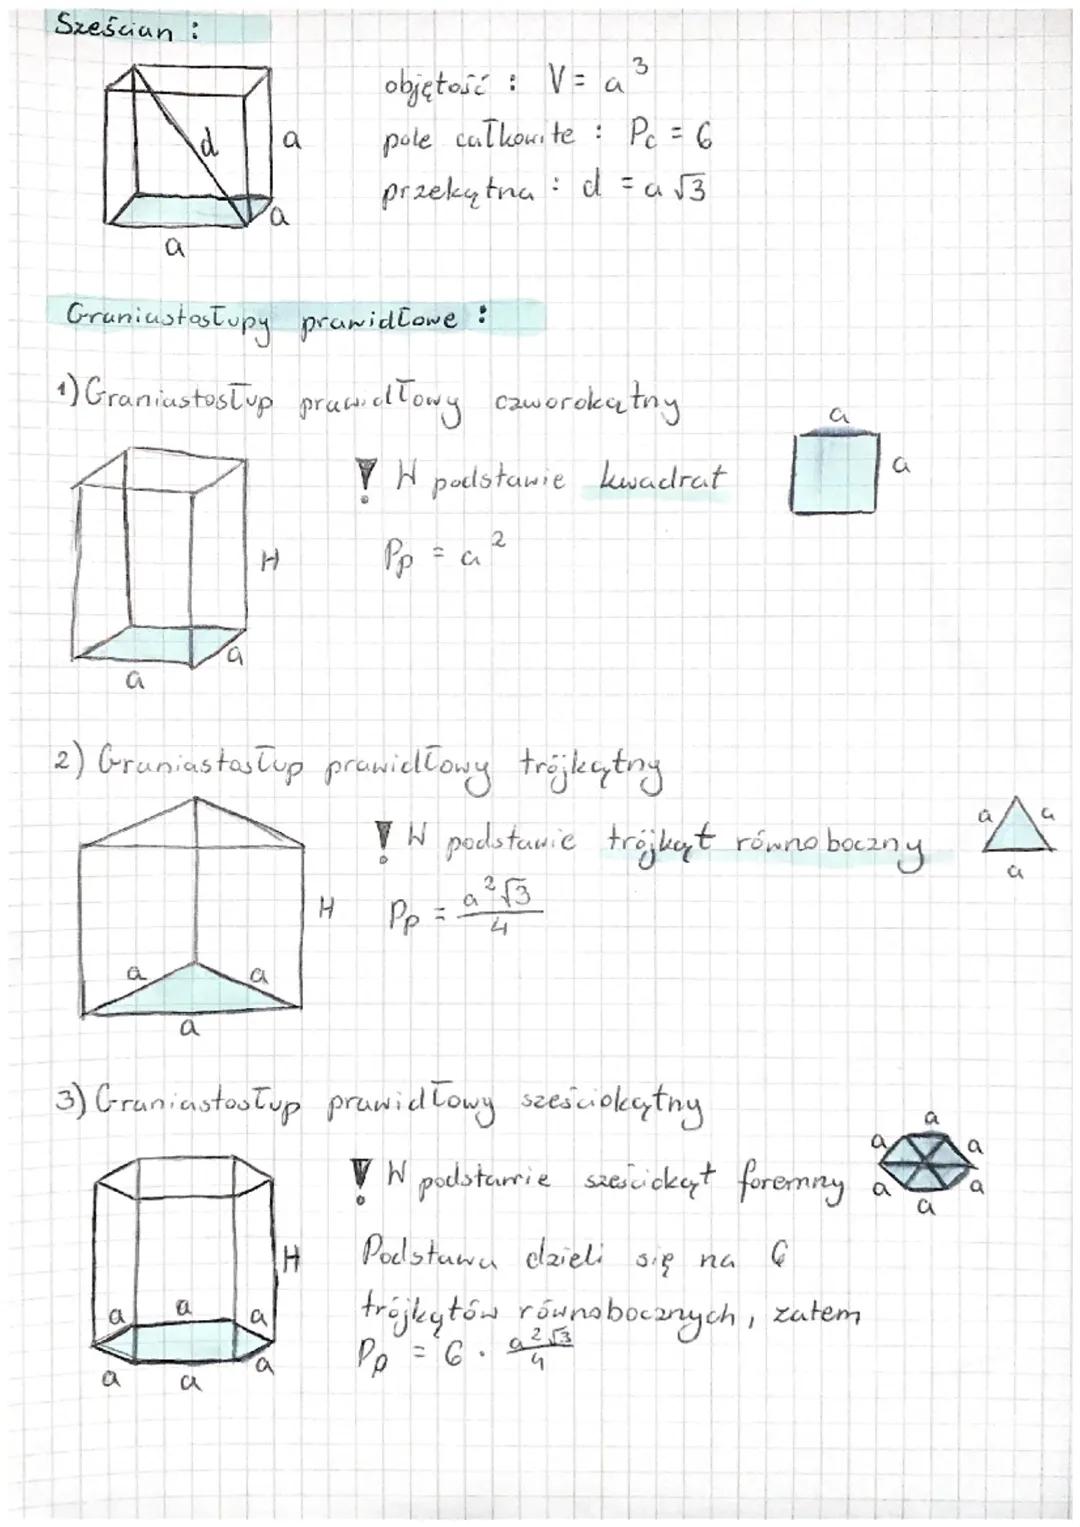 Sześcian :
objętość : V = a³
pole całkowite : Pc = 6
przekątna : d = a √3
d
a
a
a
Graniastosłupy prawidłowe :
1) Graniastosłup prawidłowy czworokątny
a
a
! W podstawie kwadrat
Pp = a²
H
a
a
2) Graniastosłup prawidłowy trójkątny
! W podstawie trójkąt równoboczny
a
a
a
H
Pp = a²√3 / 4
a
a
a
3) Graniastosłup prawidłowy sześciokątny
a
a
a
! W podstawie sześciokąt foremny
a
a
a
H
Podstawa dzieli się na 6
trójkątów równobocznych, zatem
Pp = 6 · a²√3 / 4
a
a
a
a
a
a